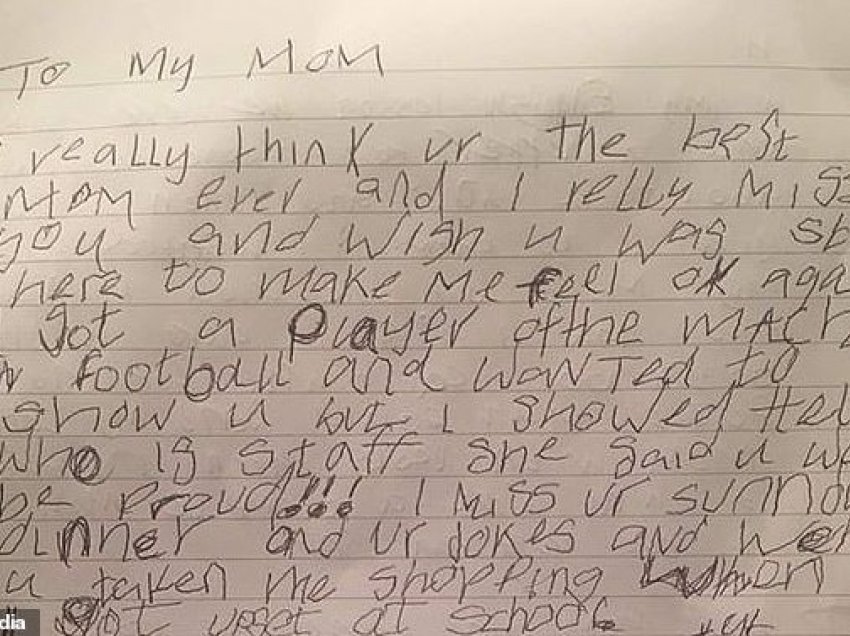 To My MoM
really think ur the best
Mom ever and I relly Miss
you and wish u was
here to make Me feel ok aga
got a player ofthe Match
football and wanted to
show u but I showed Hel
who is staff she said u wo
be proud!!! I Miss ur
dinner and ur Jokes and
u taken me shopping
got upset at school
dia